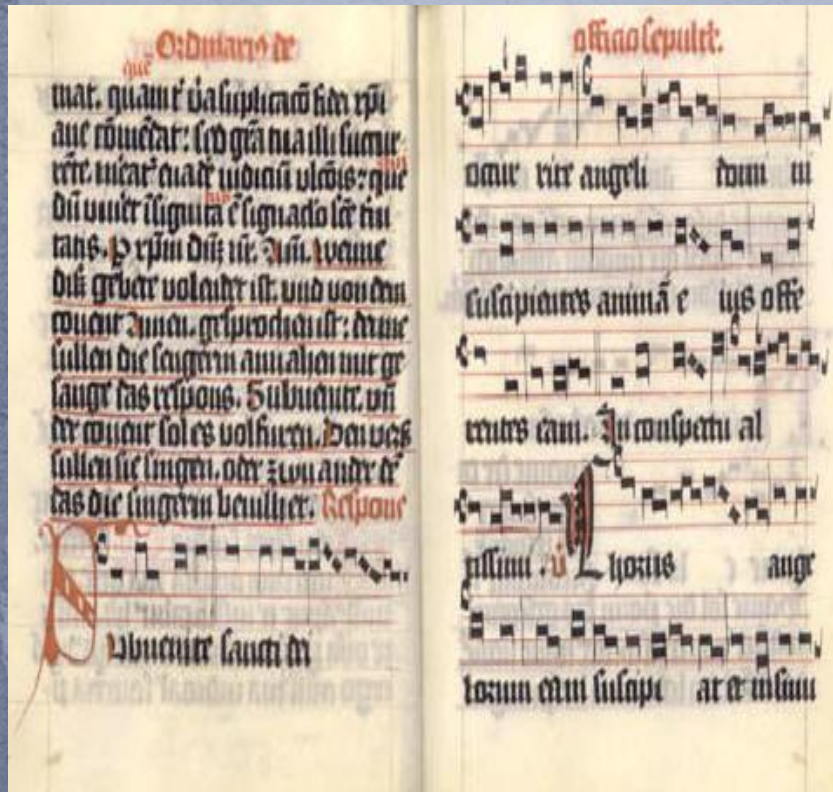 Ordinariū de
que
tuat. quam t̄ v̄a suplicacō fidei xp̄i
ane cōmēdat: sed grā tua illi succur
rēte. iudiciū ulcōis: que
dū viuer̄ īsignita ē signaclo scē tri
tatis. P xp̄m dn̄z nr̄. Am. Wenne
diß gebete volendet ist. und von dem
couent Amen. gesprochen ist: denne
sullen die sengerin mit ge
sange das respons. Subuenite. vn̄
der couent sol es volfuren. Den vers
sullen sie singen. oder zwu ander
das die singerin beuilhet. Respons
Subuenite sancti dei
officio sepultr̄.
occur rite angeli domi ni
suscipientes animā e ius offe
rentes eam. In conspectu al
tissimi. v̄ Chorus ange
lorum eam suscipi at et in sinu